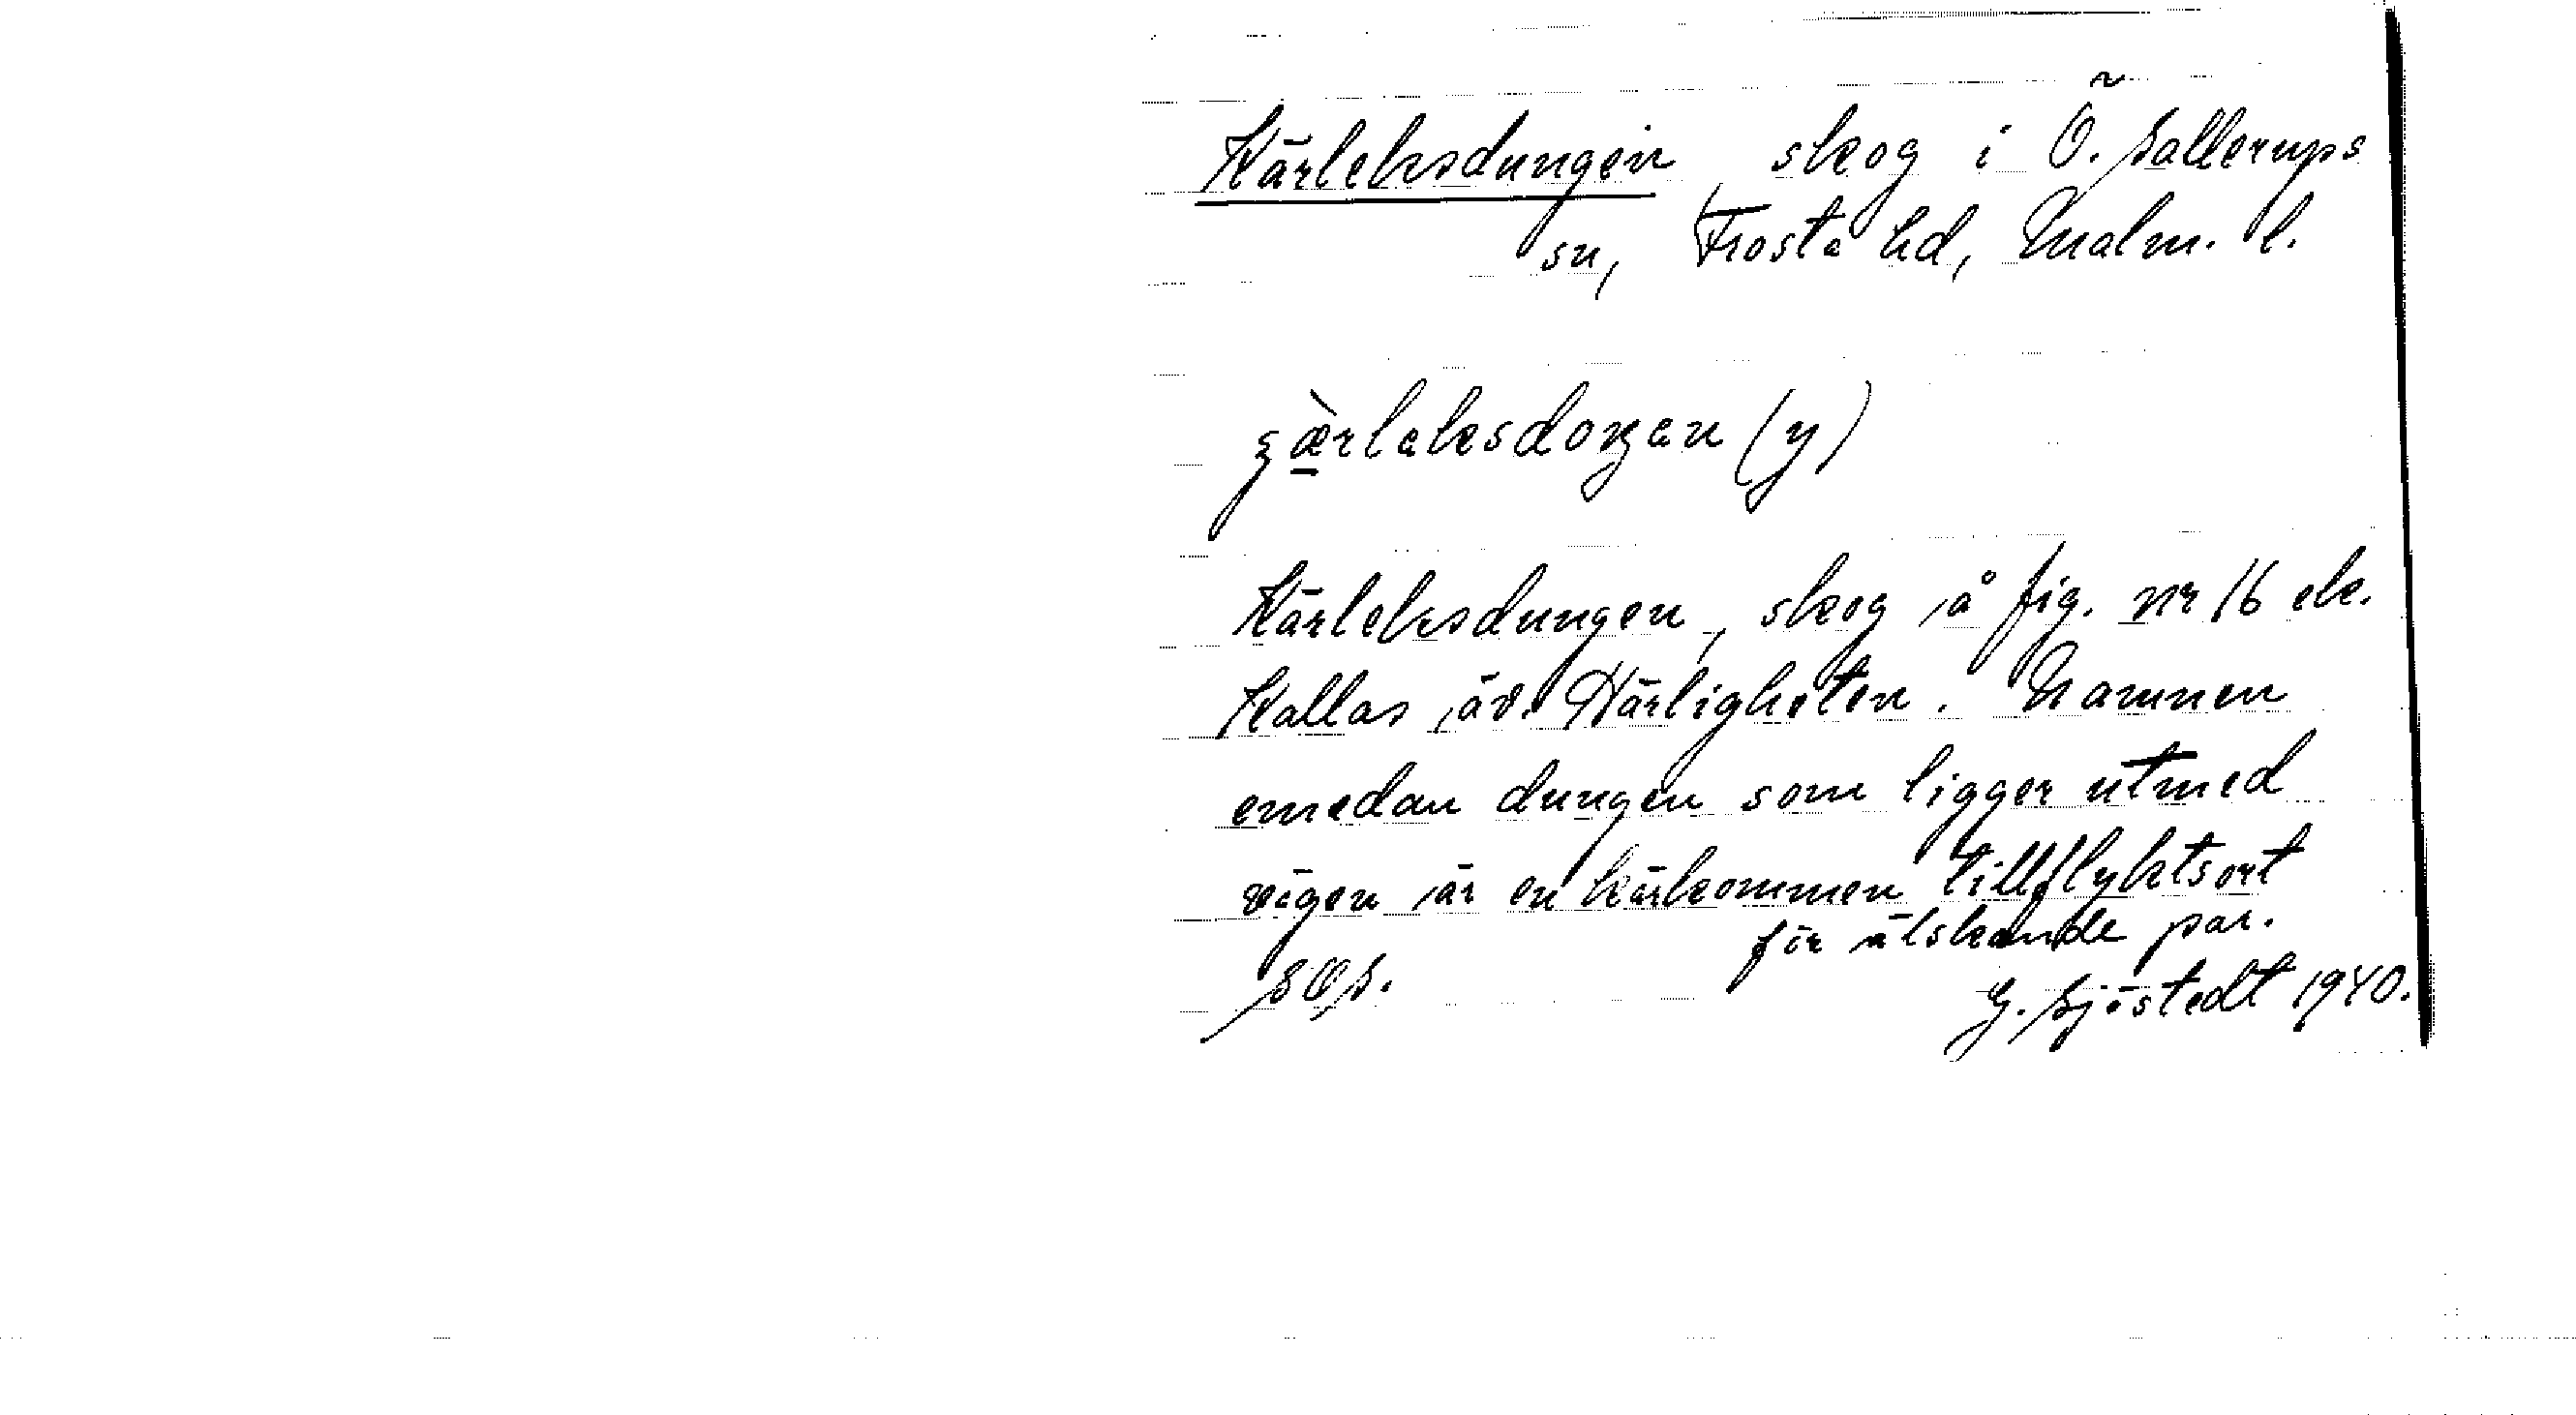 Kärleksdungen, skog i Ö. Sallerups
sn, Frosta hd, Malm. l.
Kärleksdungen, skog å fig. nr 16 ek.
Kallas äv. Härligheten. Namnen
emedan dungen som ligger utmed
vägen är en kärkommen tillflyktsort
för älskande par.
SOS.
G. Sjöstedt 1940.